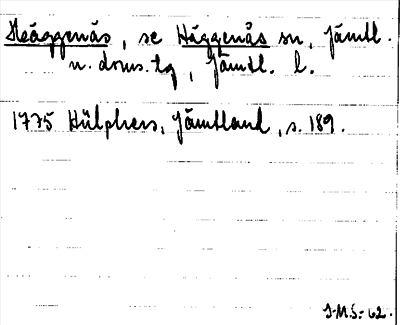 Heäggenås, se Häggenås sn, Jämtl.
n. doms. tg, Jämtl. l.
1775 Hülphers, Jämtland, s. 189.
J.M.S.-62.